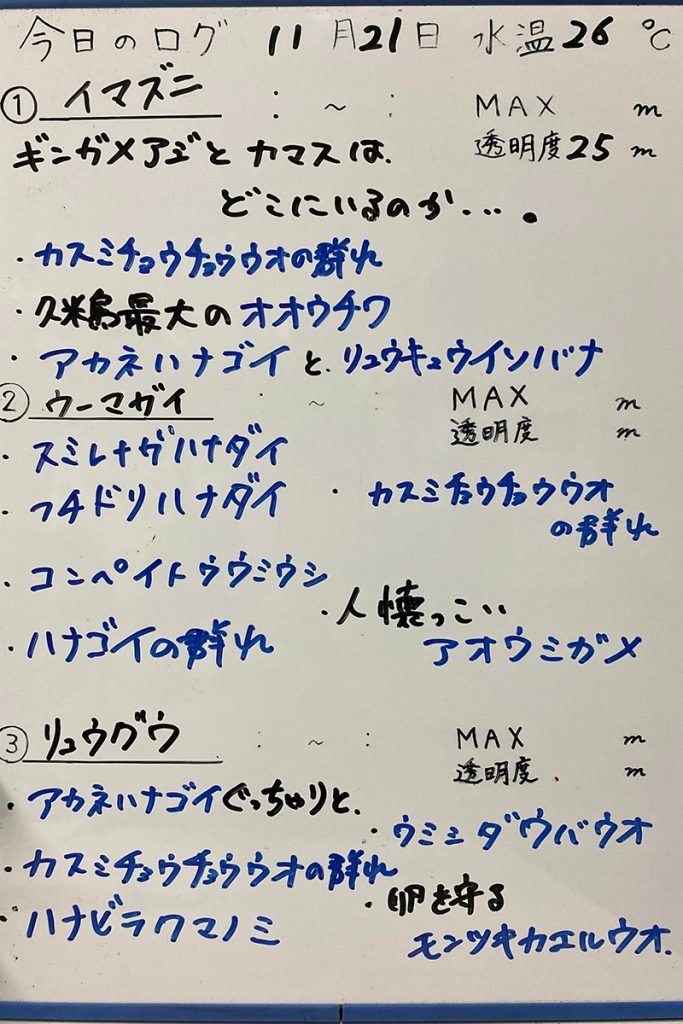 今日のログ 11月21日 水温26℃
① イマズニ : ~ : MAX m
透明度25m
ギンガメアジとカマスは、
どこにいるのか…。
・カスミチョウチョウウオの群れ
・久米島最大のオオウチワ
・アカネハナゴイと、リュウキュウイソバナ
② ウーマガイ : ~ : MAX m
透明度 m
・スミレナガハナダイ
・フチドリハナダイ
・カスミチョウチョウウオ
の群れ
・コンペイトウウミウシ
・人懐っこい
アオウミガメ
・ハナゴイの群れ
③ リュウグウ : ~ : MAX m
透明度 m
・アカネハナゴイぐっちゃりと、
・ウミシダウバウオ
・カスミチョウチョウウオの群れ
・ハナビラクマノミ
・卵を守る
モンツキカエルウオ.